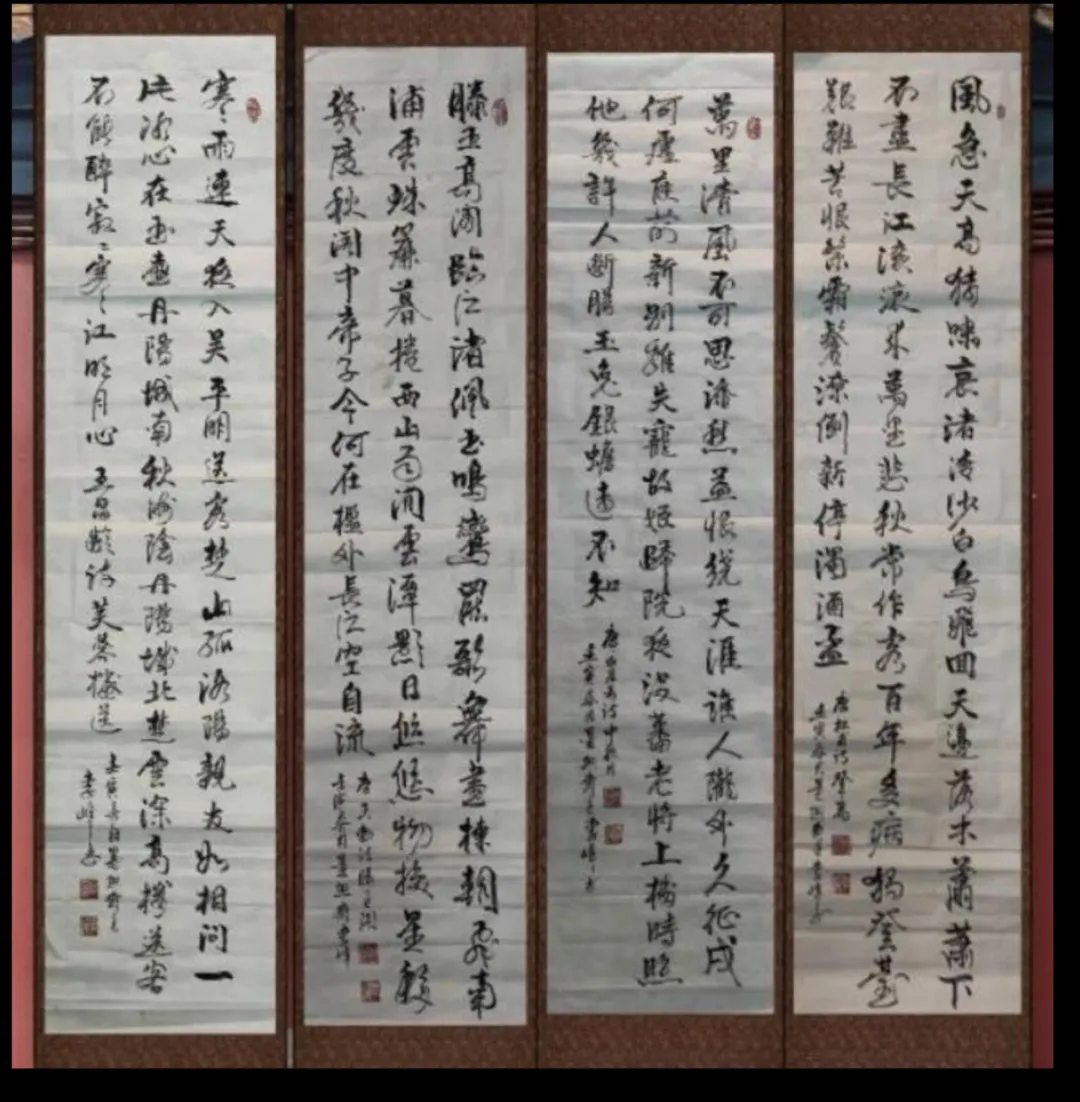 風急天高猿嘯哀渚清沙白鳥飛回天邊落木蕭蕭下
不盡長江滾滾來萬里悲秋常作客百年多病獨登臺
艱難苦恨繁霜鬢潦倒新停濁酒盃
唐杜甫詩登高
壬寅春月墨熙齋主李峰書
萬里清風不可思添愁益恨繞天涯誰人隴外久征戍
何處庭前新別離失寵故姬歸院夜沒蕃老將上樓時照
他幾許人斷腸玉兔銀蟾遠不知
唐白居易詩中秋月
壬寅春月墨熙齋主李峰書
滕王高閣臨江渚佩玉鳴鸞罷歌舞畫棟朝飛南
浦雲珠簾暮捲西山雨閒雲潭影日悠悠物換星移
幾度秋閣中帝子今何在檻外長江空自流
唐王勃詩滕王閣
壬寅春月墨熙齋李峰
寒雨連天夜入吴平明送客楚山孤洛陽親友如相問一
片冰心在玉壺丹陽城南秋海陰丹陽城北楚雲深高樓送客
不能醉寂寂寒江明月心 王昌齡詩芙蓉樓送
壬寅春月墨熙齋主
李峰書